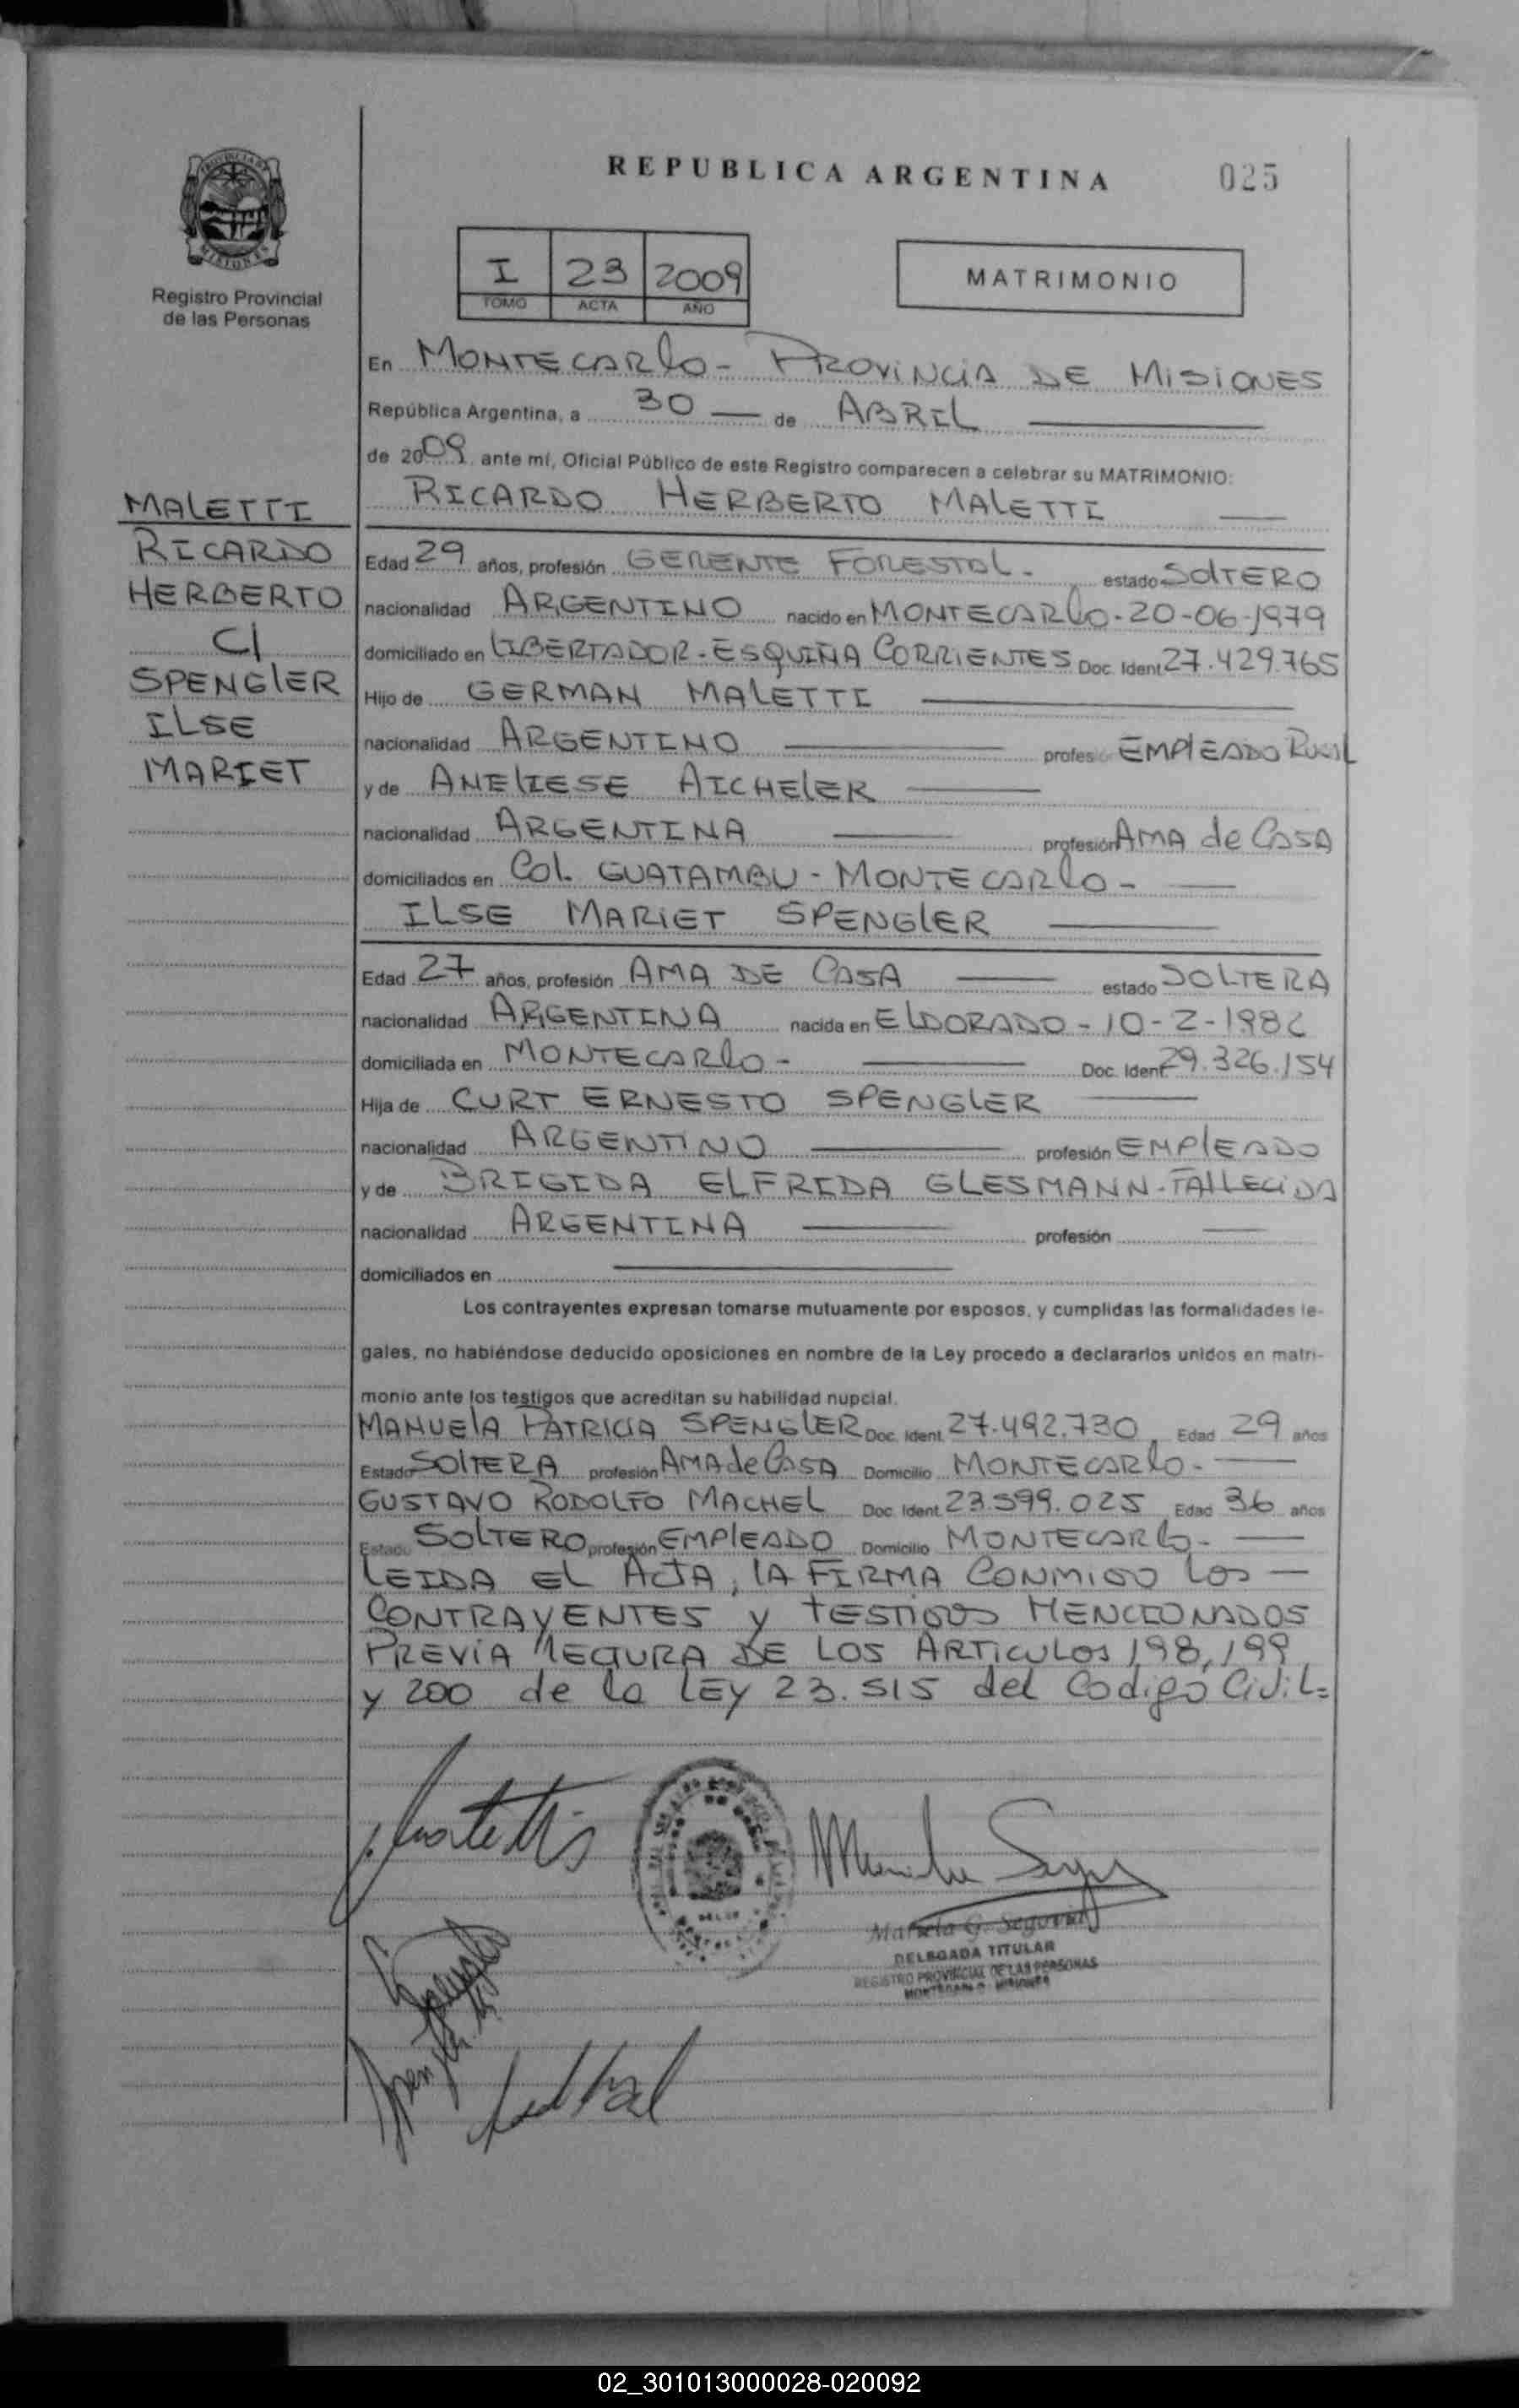 REPUBLICA ARGENTINA
025
PROVINCIA DE
MISIONES
Registro Provincial
de las Personas
I 23 2009
TOMO ACTA AÑO
MATRIMONIO
En MONTECARLO - PROVINCIA DE MISIONES
República Argentina, a 30 — de ABRIL
de 2009 ante mí, Oficial Público de este Registro comparecen a celebrar su MATRIMONIO:
RICARDO HERBERTO MALETTI
MALETTI
RICARDO
HERBERTO
C/
SPENGLER
ILSE
MARIET
Edad 29 años, profesión GERENTE FORESTAL - estado SOLTERO
nacionalidad ARGENTINO nacido en MONTECARLO - 20-06-1979
domiciliado en LIBERTADOR - ESQUIÑA CORRIENTES Doc. Ident 27.429.765
Hijo de GERMAN MALETTI
nacionalidad ARGENTINO profesión EMPLEADO RURAL
y de ANELIESE AICHELER
nacionalidad ARGENTINA profesión AMA de CASA
domiciliados en COL. GUATAMBU - MONTECARLO -
ILSE MARIET SPENGLER
Edad 27 años, profesión AMA DE CASA estado SOLTERA
nacionalidad ARGENTINA nacida en ELDORADO - 10-2-1982
domiciliada en MONTECARLO - Doc. Ident 29.326.154
Hija de CURT ERNESTO SPENGLER
nacionalidad ARGENTINO profesión EMPLEADO
y de BRIGIDA ELFRIDA GLESMANN - FALLECIDA
nacionalidad ARGENTINA profesión
domiciliados en
Los contrayentes expresan tomarse mutuamente por esposos, y cumplidas las formalidades le-
gales, no habiéndose deducido oposiciones en nombre de la Ley procedo a declararlos unidos en matri-
monio ante los testigos que acreditan su habilidad nupcial.
MANUELA PATRICIA SPENGLER Doc. Ident. 27.492.730 Edad 29 años
Estado SOLTERA profesión AMA de CASA Domicilio MONTECARLO -
GUSTAVO RODOLFO MACHEL Doc. Ident. 23.599.025 Edad 36 años
Estado SOLTERO profesión EMPLEADO Domicilio MONTECARLO -
LEIDA EL ACTA, LA FIRMA CONMIGO LOS —
CONTRAYENTES y TESTIGOS MENCIONADOS
PREVIA LECTURA DE LOS ARTICULOS 198, 199
y 200 de la LEY 23.515 del Codigo Civil =
Mariela G. Segovia
DELEGADA TITULAR
REGISTRO PROVINCIAL DE LAS PERSONAS
MONTECARLO - MISIONES
02_301013000028-020092